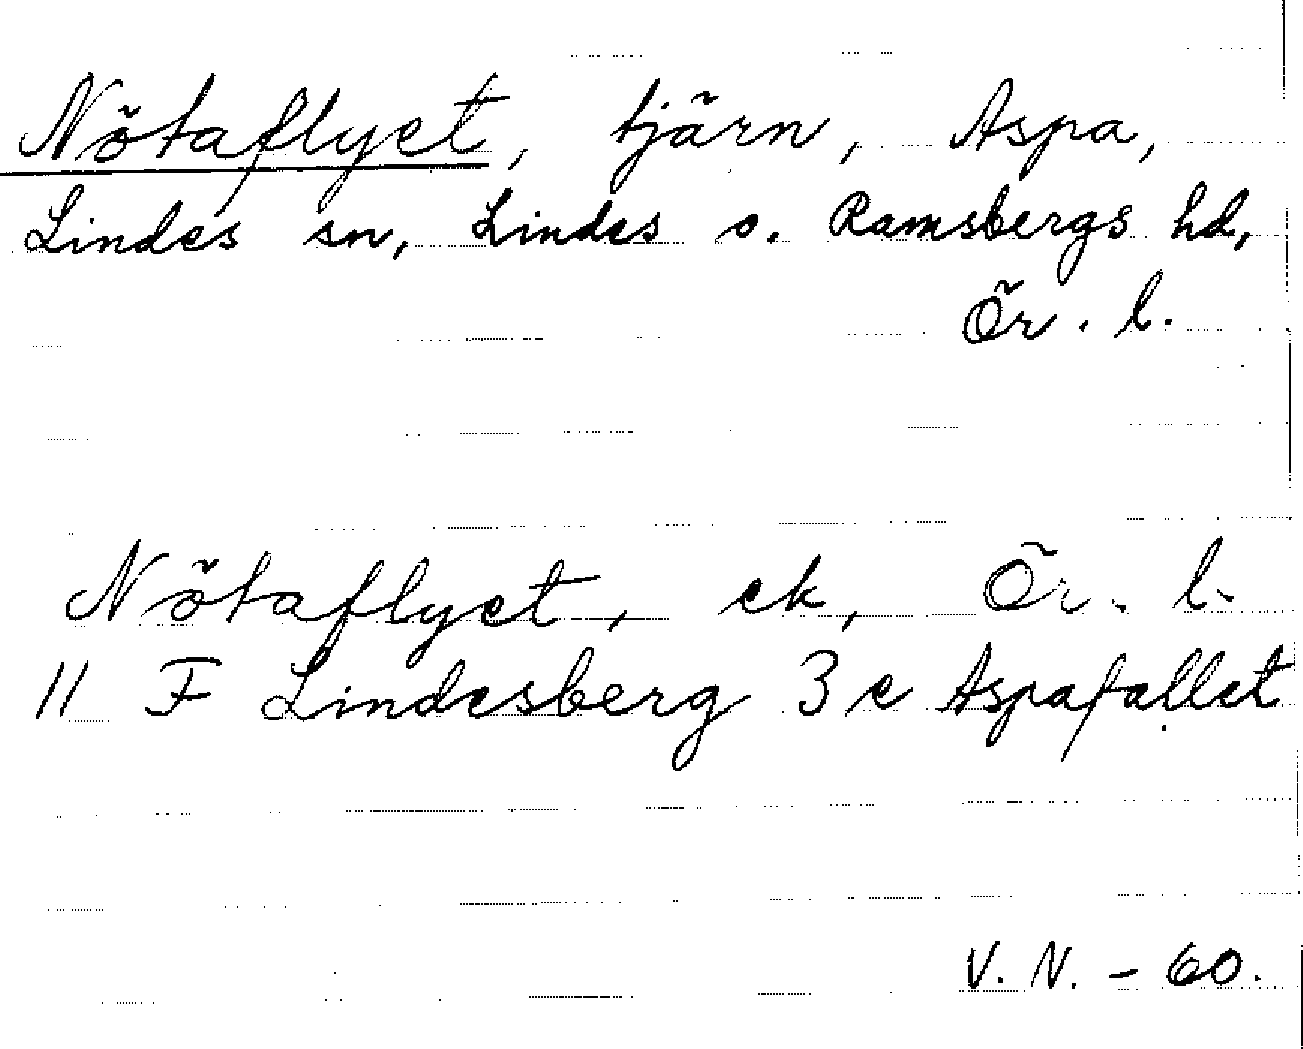 Nötaflyet, tjärn, Aspa,
Lindes sn, Lindes o. Ramsbergs hd,
Ör. l.
Nötaflyet, ek, Ör. l.
11 F Lindesberg 3 e Aspafallet
V. N. - 60.